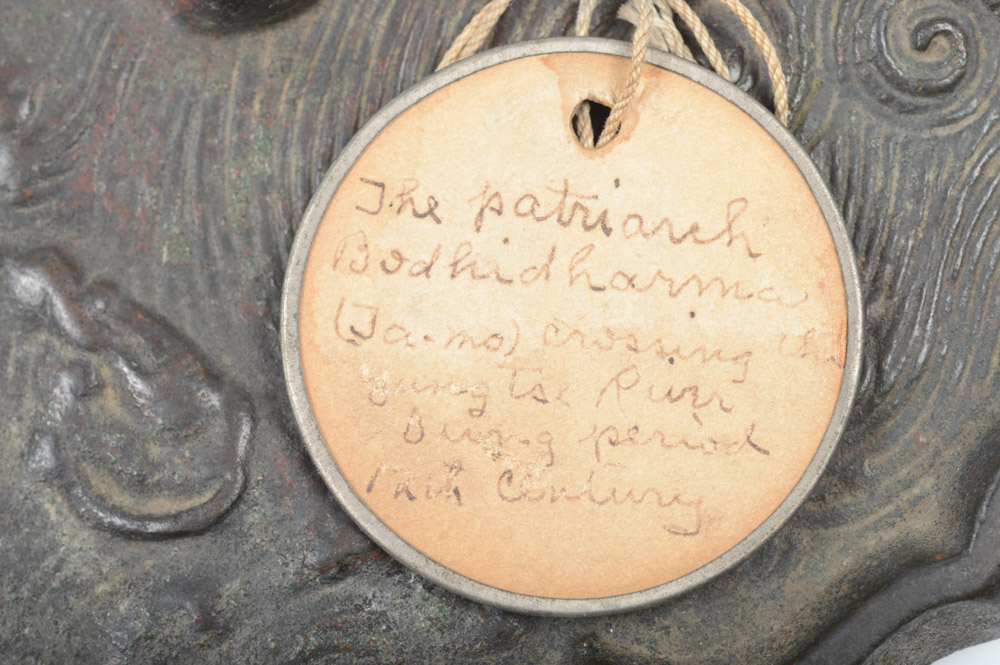 The patriarch
Bodhidharma
(Ta-mo) crossing the
yung tse River
period
12th Century